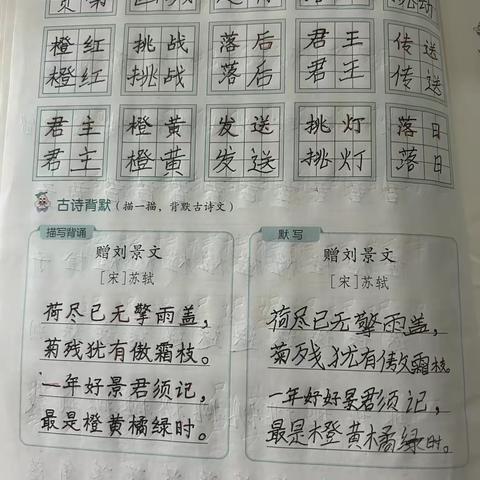 橙红 挑战 落后 君王 传送
橙红 挑战 落后 君王 传送
君主 橙黄 发送 挑灯 落日
君主 橙黄 发送 挑灯 落日
古诗背默（描一描，背默古诗文）
描写背诵
赠刘景文
[宋]苏轼
荷尽已无擎雨盖，
菊残犹有傲霜枝。
一年好景君须记，
最是橙黄橘绿时。
默写
赠刘景文
[宋]苏轼
荷尽已无擎雨盖，
菊残犹有傲霜枝。
一年好好景君须记，
最是橙黄橘绿时。